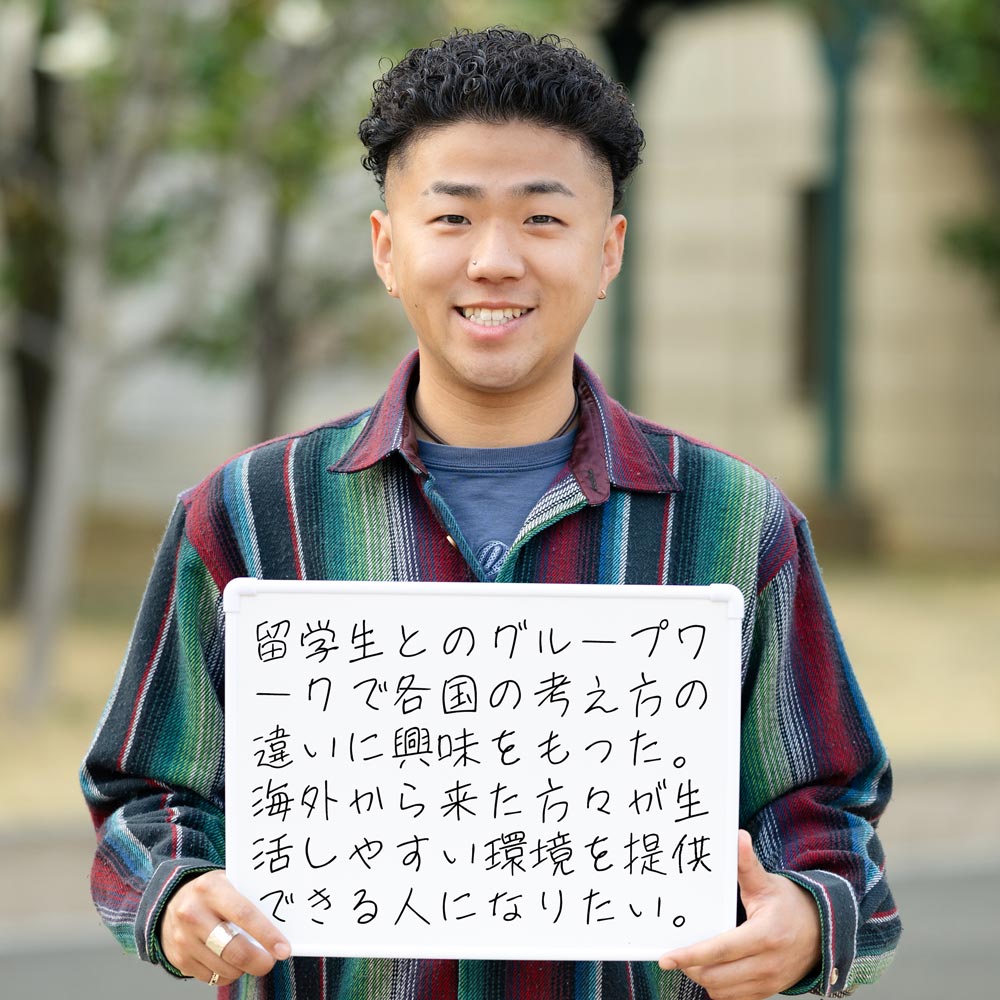 留学生とのグループワ
ークで各国の考え方の
違いに興味をもった。
海外から来た方々が生
活しやすい環境を提供
できる人になりたい。